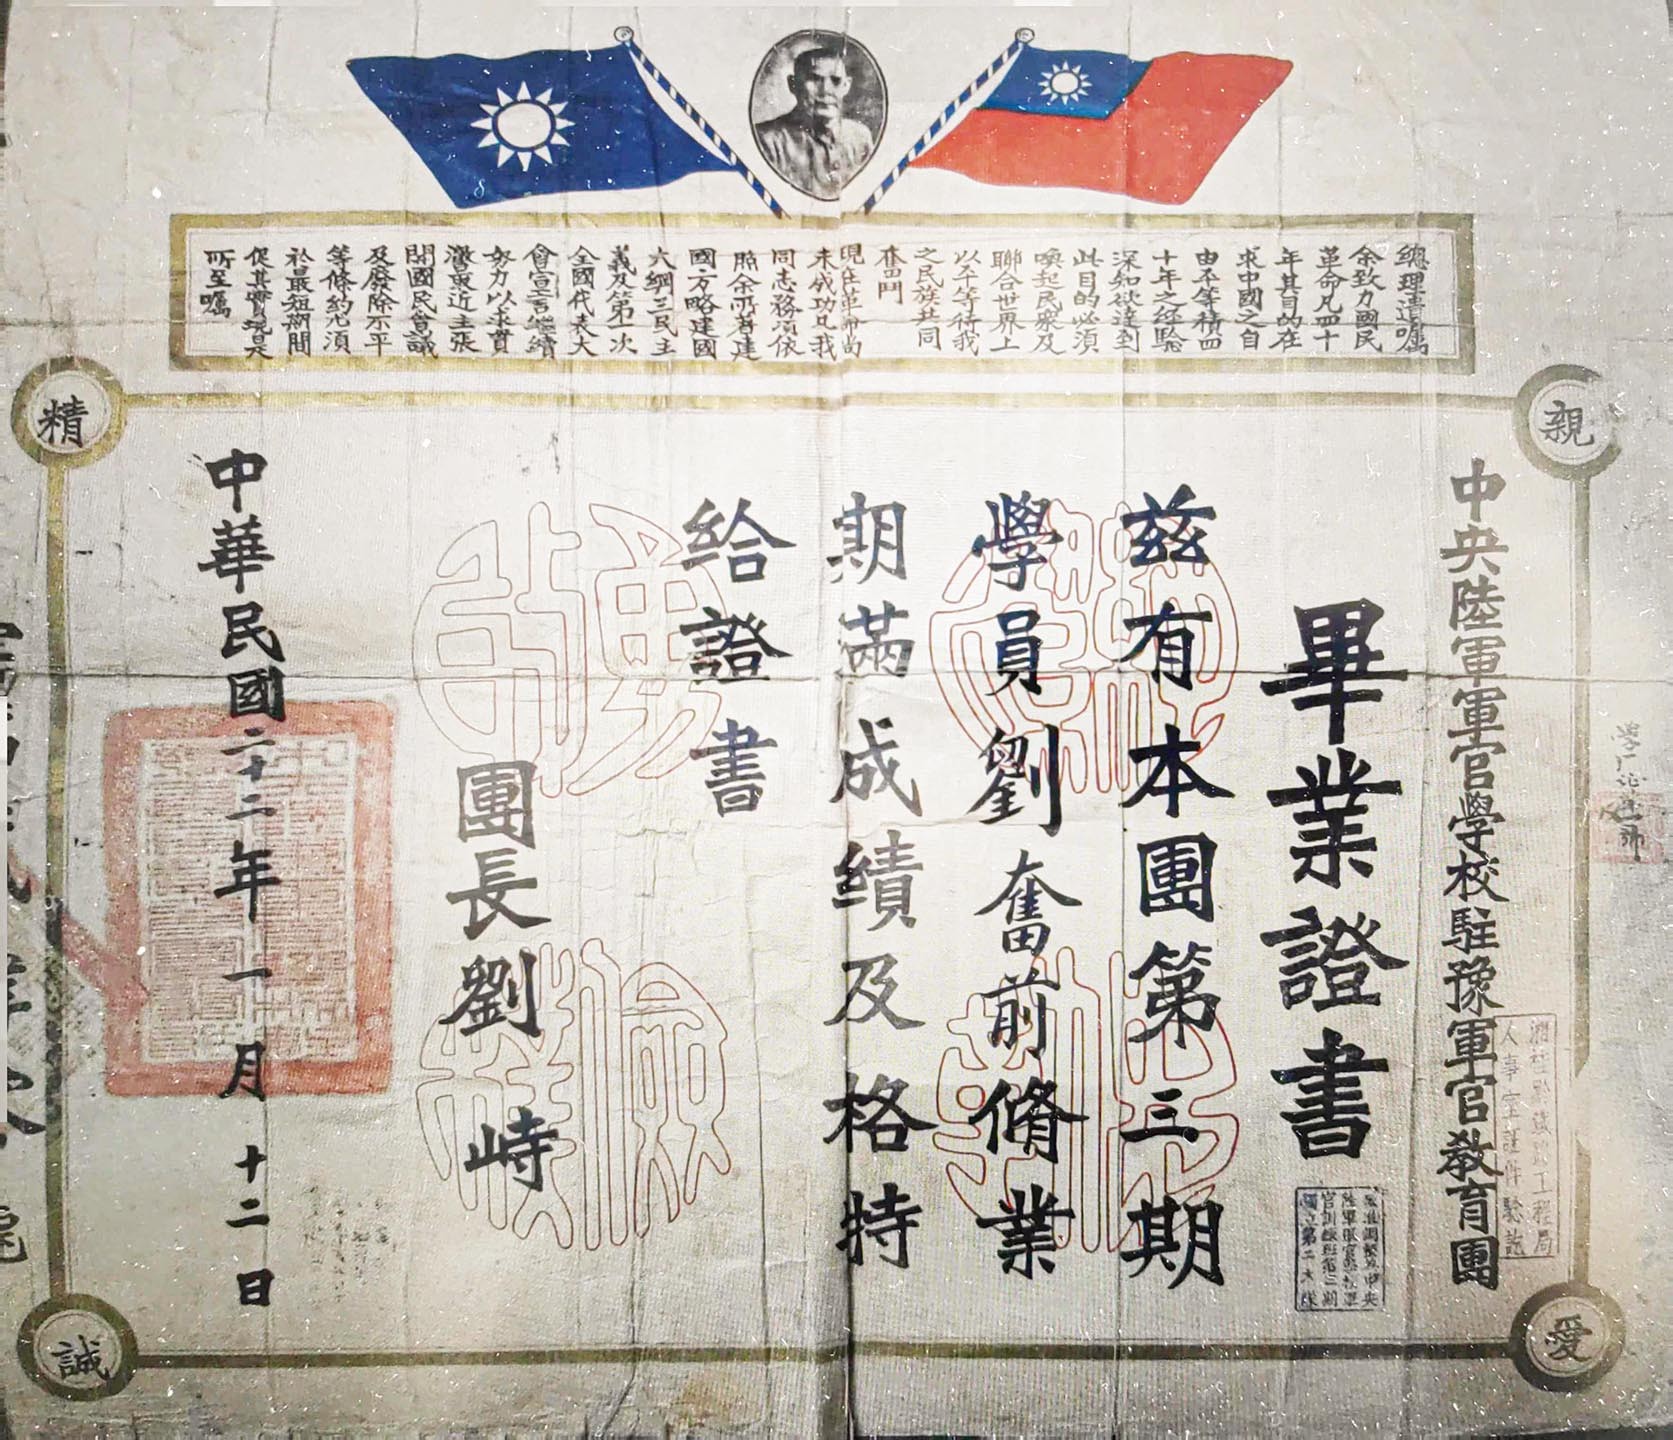 總理遺囑
余致力國民
革命凡四十
年其目的在
求中國之自
由不等積四
十年之經驗
深知欲達到
此目的必須
喚起民眾及
聯合世界上
以平等待我
之民族共同
奮鬥
現在革命尚
未成功凡我
同志務須依
照余所著建
國方略建國
大綱三民主
義及第一次
全國代表大
會宣言繼續
努力以求貫
澈最近主張
開國民會議
及廢除不平
等條約尤須
於最短期間
促其實現是
所至囑
親
愛
精
誠
中央陸軍軍官學校駐豫軍官教育團
畢業證書
茲有本團第三期
學員劉奮前脩業
期滿成績及格特
給證書
團長劉峙
中華民國二十二年一月十二日
工程局
人事室證件驗訖
獨立第二大隊